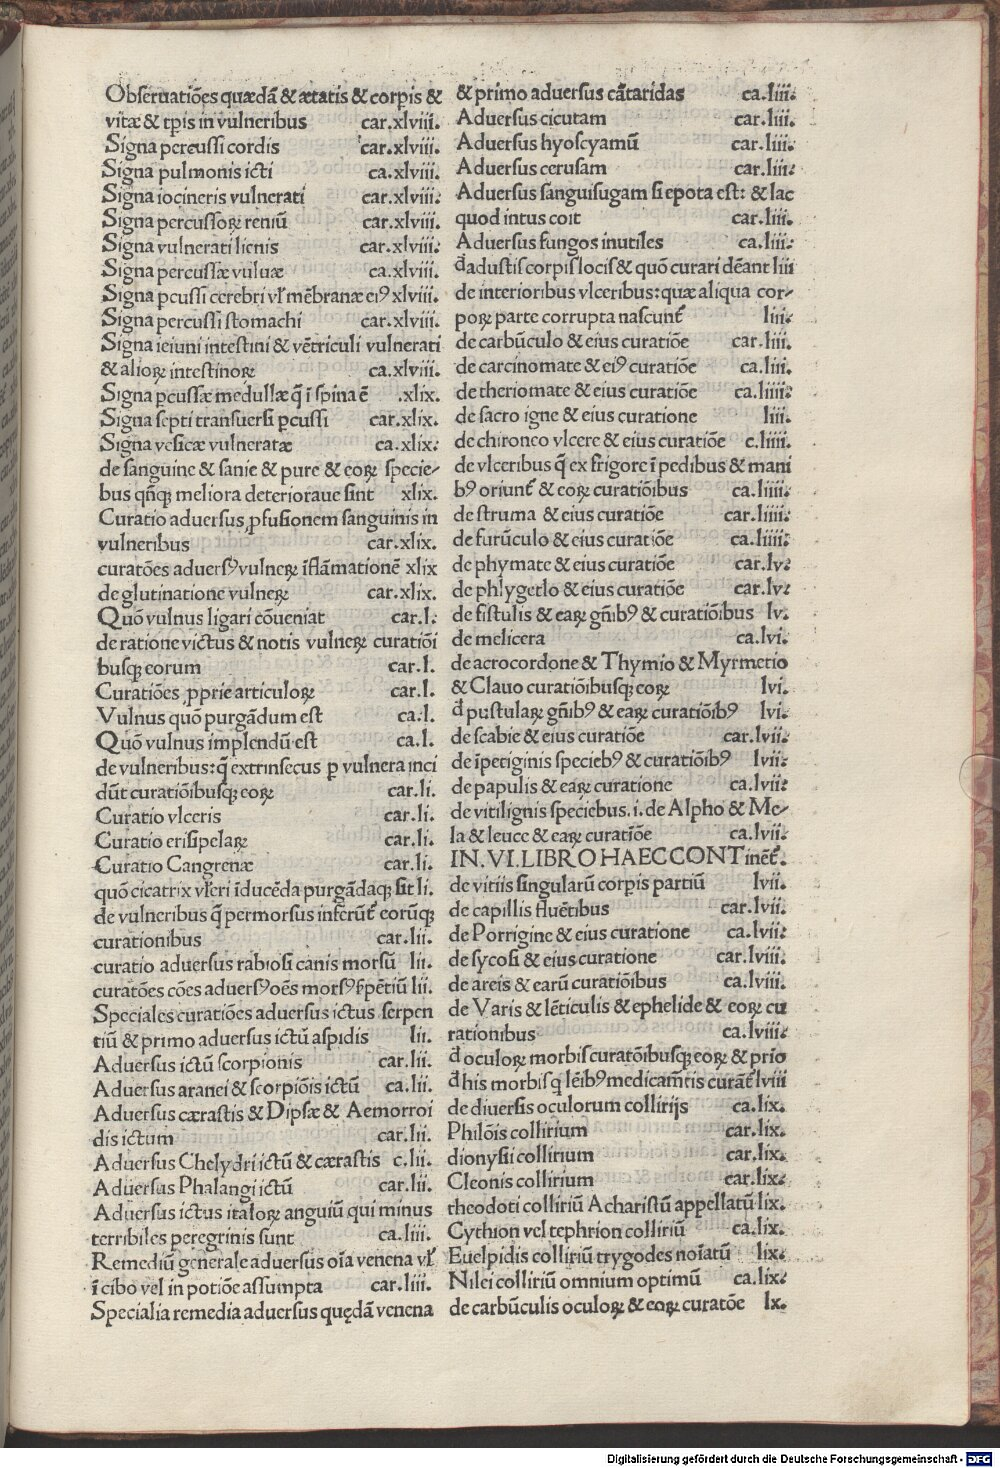 Obseruatiões quædā & ætatis & corpis &
vitæ & tpis in vulneribus car.xlviii.
Signa percussi cordis car.xlviii.
Signa pulmonis icti ca.xlviii.
Signa iocineris vulnerati car.xlviii.
Signa percussoꝝ reniū car.xlviii.
Signa vulnerati lienis car.xlviii.
Signa percussæ vuluæ ca.xlviii.
Signa pcussi cerebri vl' mēbranæ eiꝰ xlviii.
Signa percussi stomachi car.xlviii.
Signa ieiuni intestini & vētriculi vulnerati
& alioꝝ intestinoꝝ ca.xlviii.
Signa pcussæ medullæ q̄ ī spina ē .xlix.
Signa septi transuersi pcussi car.xlix.
Signa vesicæ vulneratæ ca.xlix.
de sanguine & sanie & pure & eoꝝ specie-
bus qñqꝫ meliora deterioraue sint xlix.
Curatio aduersus ꝓfusionem sanguinis in
vulneribus car.xlix.
curatōes aduersꝰ vulneꝝ īflāmationē xlix
de glutinatione vulneꝝ car.xlix.
Quō vulnus ligari cōueniat car.l.
de ratione victus & notis vulneꝝ curatiōi
busqꝫ eorum car.l.
Curatiōes ꝓprie articuloꝝ car.l.
Vulnus quō purgādum est ca.l.
Quō vulnus implendū est ca.l.
de vulneribus: q̄ extrinsecus p vulnera inci
dūt curatiōibusqꝫ eoꝝ car.li.
Curatio vlceris car.li.
Curatio erisipelaꝝ car.li.
Curatio Cangrenæ car.li.
quō cicatrix vl'ceri īducēda purgādaqꝫ sit li.
de vulneribus q̄ permorsus inferūt' eorūqꝫ
curationibus car.lii.
curatio aduersus rabiosi canis morsū lii.
curatōes cōes aduersꝰ oēs morsꝰ ſpētiū lii.
Speciales curatiōes aduersus ictus serpen
tiū & primo aduersus ictū aspidis lii.
Aduersus ictū scorpionis car.lii.
Aduersus aranei & scorpiōis ictū ca.lii.
Aduersus cærastis & Dipsæ & Aemorroi
dis ictum car.lii.
Aduersus Chelydri ictū & cærastis c.lii.
Aduersus Phalangi ictū car.lii.
Aduersus ictus italoꝝ anguiū qui minus
terribiles peregrinis sunt ca.liii.
Remediū generale aduersus oīa venena vl'
ī cibo vel in potiōe assumpta car.liii.
Specialia remedia aduersus quędā venena
& primo aduersus cātaridas ca.liii.
Aduersus cicutam car.liii.
Aduersus hyoscyamū car.liii.
Aduersus cerusam car.liii.
Aduersus sanguisugam si epota est: & lac
quod intus coit car.liii.
Aduersus fungos inutiles ca.liii.
đ adustis corpis locis & quō curari dēant liii
de interioribus vlceribus: quæ aliqua cor-
poꝝ parte corrupta nascunt' liii.
de carbūculo & eius curatiōe car.liii.
de carcinomate & eiꝰ curatiōe ca.liii.
de theriomate & eius curatiōe ca.liiii.
de sacro igne & eius curatione liii.
de chironeo vlcere & eius curatiōe c.liiii.
de vlceribus q̄ ex frigore ī pedibus & mani
bꝰ oriunt' & eoꝝ curatiōibus ca.liiii.
de struma & eius curatiōe car.liiii.
de furūculo & eius curatiōe ca.liiii.
de phymate & eius curatiōe car.lv.
de phlygetlo & eius curatiōe car.lv.
de fistulis & eaꝝ gñibꝰ & curatiōibus lv.
de melicera ca.lvi.
de acrocordone & Thymio & Myrmetio
& Clauo curatiōibusqꝫ eoꝝ lvi.
đ pustulaꝝ gñibꝰ & eaꝝ curatiōibꝰ lvi.
de scabie & eius curatiōe car.lvii.
de īpetiginis speciebꝰ & curatiōibꝰ lvii.
de papulis & eaꝝ curatione ca.lvii.
de vitilignis speciebus.i.de Alpho & Me-
la & leuce & eaꝝ curatiōe ca.lvii.
IN.VI.LIBRO HAEC CONTinēt'.
de vitiis singularū corpis partiū lvii.
de capillis fluētibus car.lvii.
de Porrigine & eius curatione ca.lvii.
de sycosi & eius curatione car.lviii.
de areis & earū curatiōibus ca.lviii.
de Varis & lēticulis & ephelide & eoꝝ cu
rationibus ca.lviii.
đ oculoꝝ morbis curatōibusqꝫ eoꝝ & prio
đ his morbis q lēibꝰ medicamtis curāt' lviii
de diuersis oculorum collirijs ca.lix.
Philōis collirium car.lix.
dionysii collirium car.lix.
Cleonis collirium car.lix.
theodoti colliriū Acharistū appellatū lix.
Cythion vel tephrion colliriū ca.lix.
Euelpidis colliriū trygodes noīatū lix.
Nilei colliriū omnium optimū ca.lix.
de carbūculis oculoꝝ & eoꝝ curatōe lx.
Digitalisierung gefördert durch die Deutsche Forschungsgemeinschaft - DFG